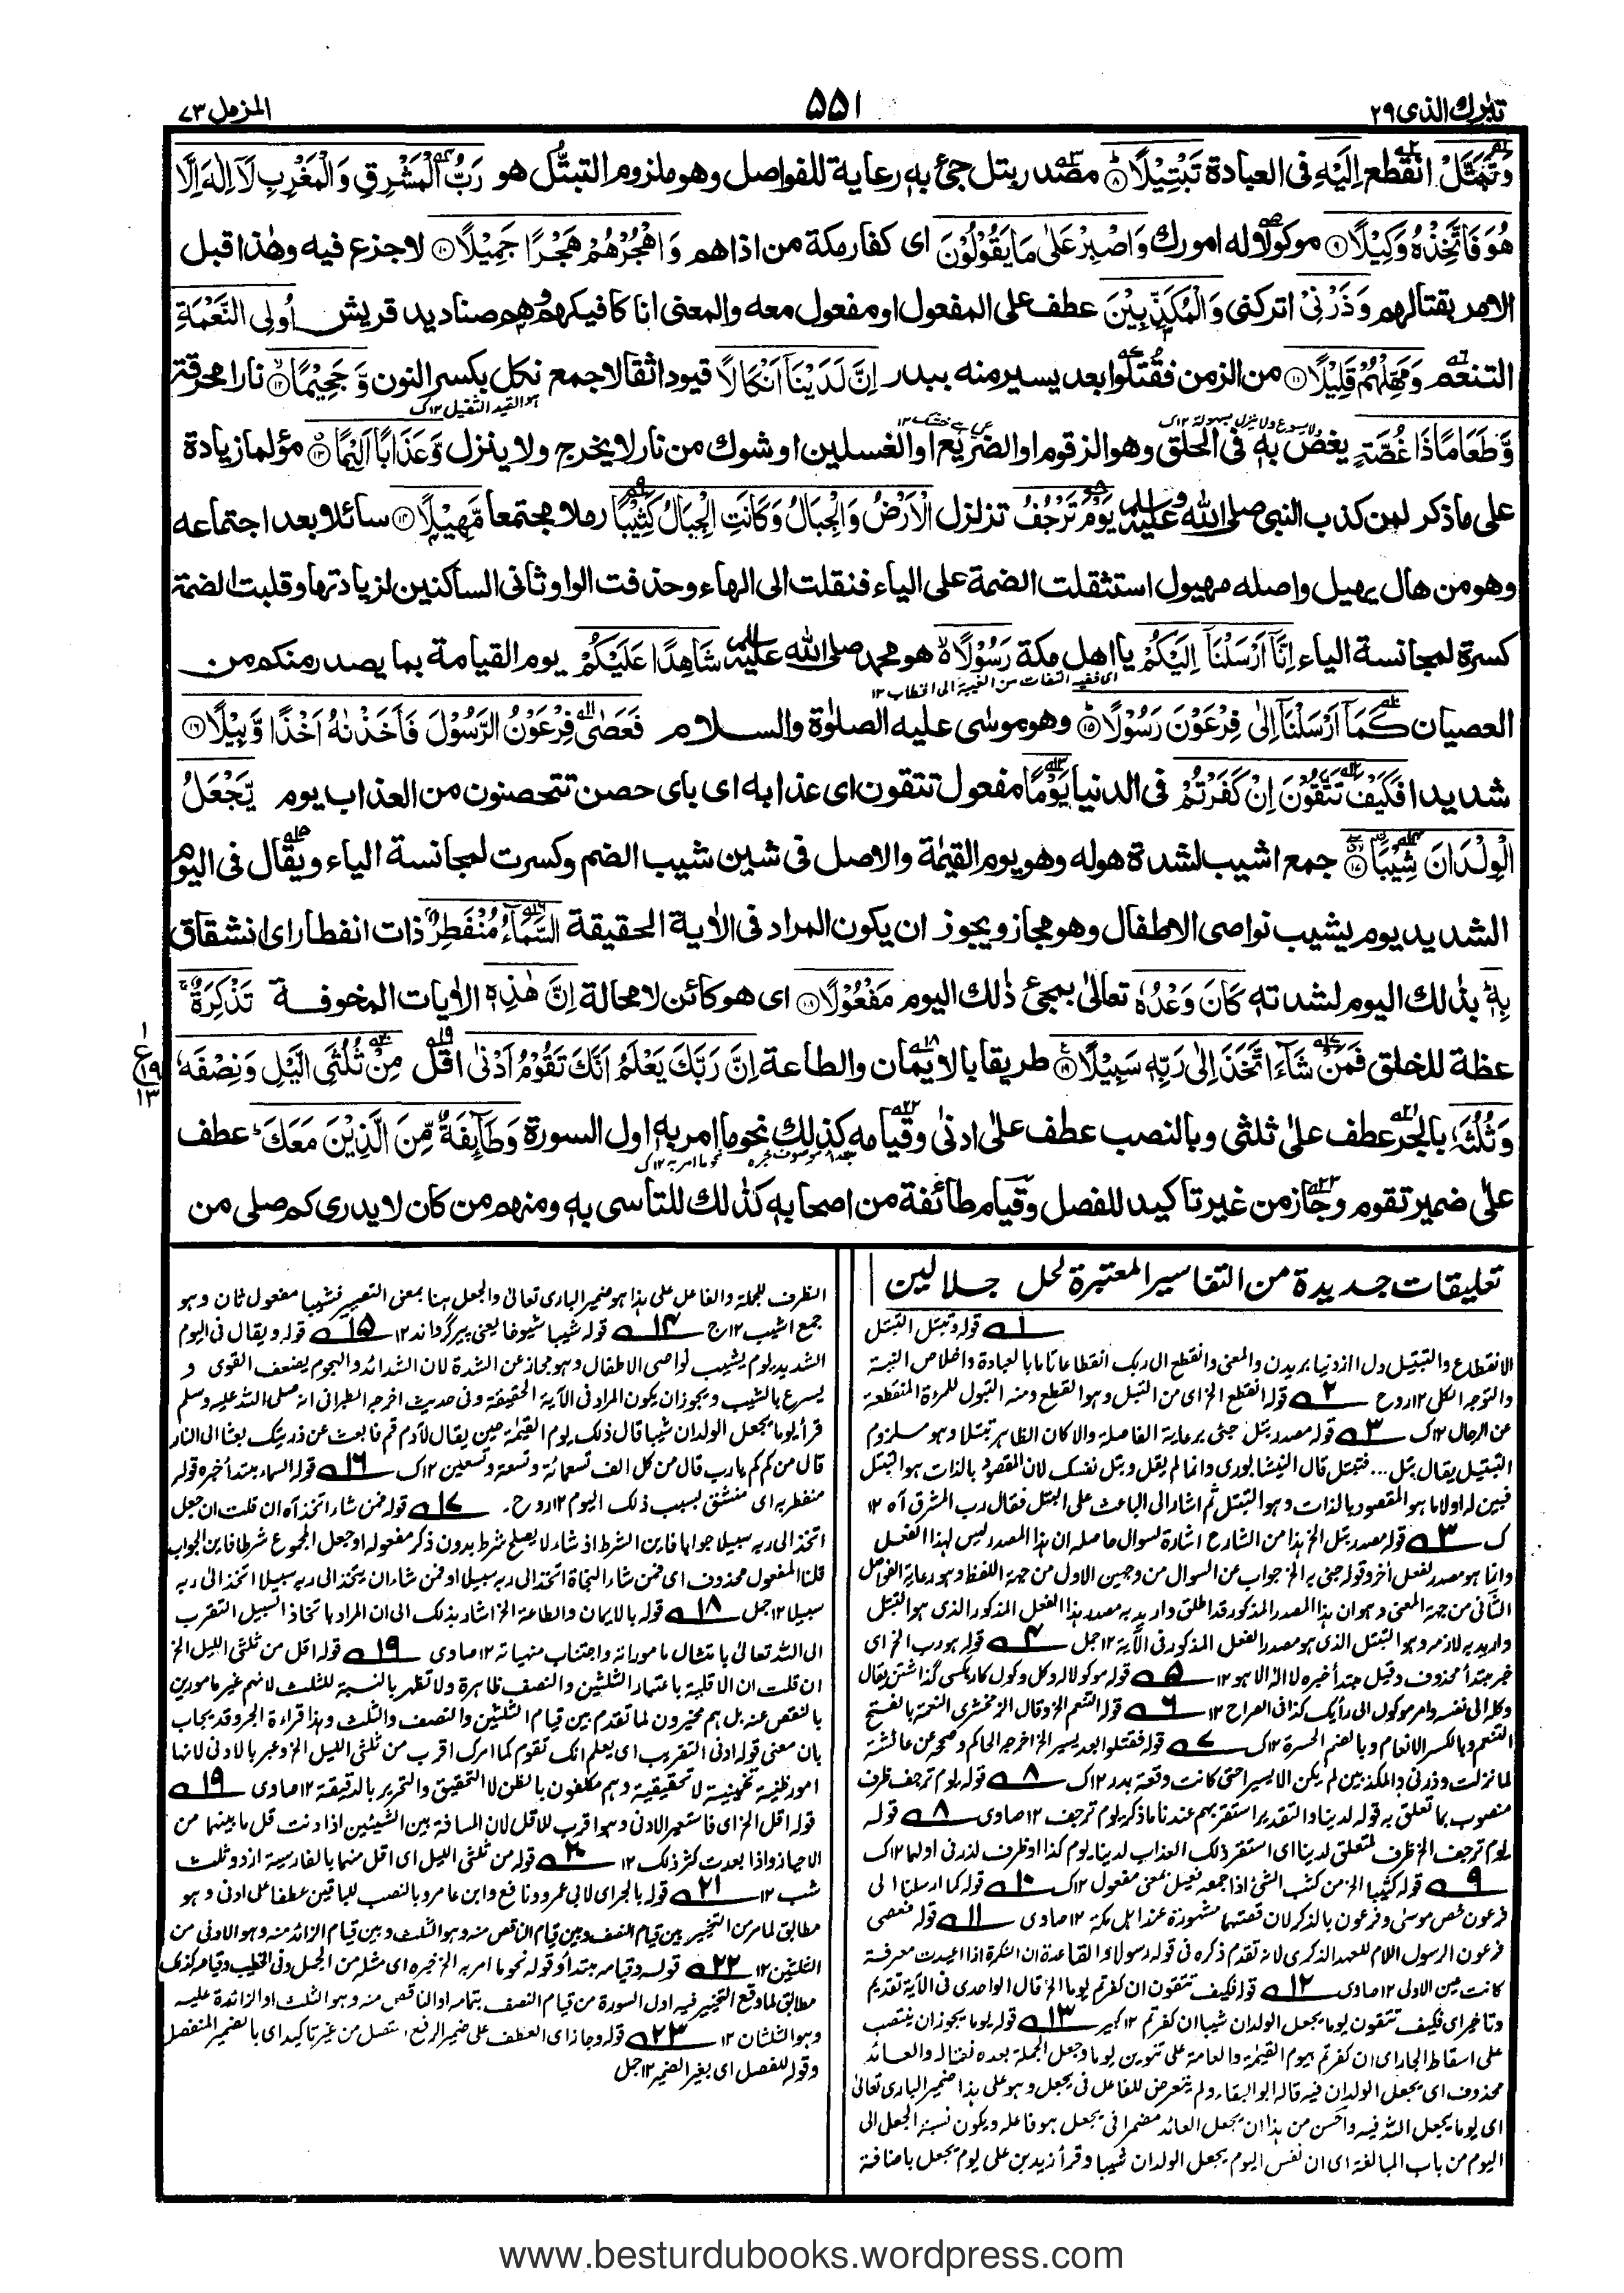 تبٰرك الذی ٢٩
٥٥١
المزمل ٧٣
وَتَبَتَّلْ انقطع اِلَيْهِ فی العبادة تَبْتِيْلًا ۝٨ مصدر بتل جیٔ به رعاية للفواصل وهو ملزوم التبتُّل هو رَبُّ الْمَشْرِقِ وَالْمَغْرِبِ لَآ اِلٰهَ اِلَّا
هُوَ فَاتَّخِذْهُ وَكِيْلًا ۝٩ موكولا له امورك وَاصْبِرْ عَلٰى مَا يَقُوْلُوْنَ ای كفار مكة من اذاهم وَاهْجُرْهُمْ هَجْرًا جَمِيْلًا ۝١٠ لا جذع فيه وهٰذا قبل
الامر بقتالهم وَذَرْنِیْ اتركنی وَالْمُكَذِّبِيْنَ عطف علی المفعول او مفعول معه والمعنی انا كافيكهم وهم صناديد قريش اُولِی النَّعْمَةِ
التنعم وَمَهِّلْهُمْ قَلِيْلًا ۝١١ من الزمن فقُتلوا بعد يسير منه ببدر اِنَّ لَدَيْنَآ اَنْكَالًا قيودا ثقالا جمع نكل بكسر النون وَّ جَحِيْمًا ۝١٢ نارا محرقة
هو القيد الثقيل ١٢ك
وَّطَعَامًا ذَا غُصَّةٍ يغص به فی الحلق وهو الزقوم او الضريع او الغسلين او شوك من نار لا يخرج ولا ينزل وَّعَذَابًا اَلِيْمًا ۝١٣ مؤلما زيادة
علی ما ذكر لمن كذب النبی صلی الله عليه وسلم يَوْمَ تَرْجُفُ تزلزل الْاَرْضُ وَالْجِبَالُ وَكَانَتِ الْجِبَالُ كَثِيْبًا رملا مجتمعا مَّهِيْلًا ۝١٤ سائلا بعد اجتماعه
وهو من هال يهيل واصله مهيول استثقلت الضمة علی الياء فنقلت الی الهاء وحذفت الواو ثانی الساكنين لزيادتها وقلبت الضمة
كسرة لمجانسة الياء اِنَّآ اَرْسَلْنَآ اِلَيْكُمْ يا اهل مكة رَسُوْلًا هو محمد صلی الله عليه وسلم شَاهِدًا عَلَيْكُمْ يوم القيامة بما يصدر منكم من
ای ففيه التفات من الغيبة الی الخطاب ١٢
العصيان كَمَآ اَرْسَلْنَآ اِلٰى فِرْعَوْنَ رَسُوْلًا ۝١٥ وهو موسٰی عليه الصلوٰة والسلام فَعَصٰى فِرْعَوْنُ الرَّسُوْلَ فَاَخَذْنٰهُ اَخْذًا وَّبِيْلًا ۝١٦
شديدا فَكَيْفَ تَتَّقُوْنَ اِنْ كَفَرْتُمْ فی الدنيا يَوْمًا مفعول تتقون ای عذابه ای بای حصن تتحصنون من العذاب يوم يَّجْعَلُ
الْوِلْدَانَ شِيْبًا ۝١٧ جمع اشيب لشدة هوله وهو يوم القيٰمة والاصل فی شين شيب الضم وكسرت لمجانسة الياء ويقال فی اليوم
الشديد يوم يشيب نواصی الاطفال وهو مجاز ويجوز ان يكون المراد فی الاٰية الحقيقة السَّمَآءُ مُنْفَطِرٌ ذات انفطار ای انشقاق
بِهٖ بذلك اليوم لشدته كَانَ وَعْدُهٗ تعالیٰ بمجیٔ ذٰلك اليوم مَفْعُوْلًا ۝١٨ ای هو كائن لا محالة اِنَّ هٰذِهٖ الاٰيات المخوفة تَذْكِرَةٌ
عظة للخلق فَمَنْ شَآءَ اتَّخَذَ اِلٰى رَبِّهٖ سَبِيْلًا ۝١٩ طريقا بالايمان والطاعة اِنَّ رَبَّكَ يَعْلَمُ اَنَّكَ تَقُوْمُ اَدْنٰى اقل مِنْ ثُلُثَیِ الَّيْلِ وَنِصْفَهٗ
وَثُلُثَهٗ بالجر عطف علیٰ ثلثی وبالنصب عطف علیٰ ادنیٰ وقيامه كذلك نحو ما امر به اول السورة وَطَآئِفَةٌ مِّنَ الَّذِيْنَ مَعَكَ عطف
علیٰ ضمير تقوم وجاز من غير تاكيد للفصل وقيام طائفة من اصحابه كذٰلك للتأسی به ومنهم من كان لا يدری كم صلی من
١
ع
١٩
١٣
تعليقات جديدة من التفاسير المعتبرة لحل جلالين
١ قوله وتبتل التبتل
الانقطاع والتبتيل دل از دنيا بريدن والمعنی وانقطع الی ربك انقطاعا تاما بالعبادة واخلاص النية
والتوجه الكلی ١٢ روح ٢ قوله انقطع الخ ای من البتل وهو القطع ومنه البتول للمرأة المنقطعة
عن الرجال ١٢ك ٣ قوله مصدر بتل جئ به رعاية الفاصلة والا كان الظاهر تبتلا وهو ملزوم
التبتيل يقال بتل ... فتبتل قال النيشابوری وانما لم يقل وبتل نفسك لان المقصود بالذات هو التبتل
فبين له اولا ما هو المقصود بالذات وهو التبتل ثم اشار الی الباعث علی التبتل فقال رب المشرق آه ١٢
ك ٣ قوله مصدر بتل الخ هذا من الشارح اشارة لسوال حاصله ان هذا المصدر ليس لهذا الفعل
وانما هو مصدر لفعل آخر وقوله جئ به الخ جواب عن السوال من وجهين الاول من جهة اللفظ وهو رعاية الفواصل
الثانی من جهة المعنی وهو ان هذا المصدر المذكور قد اطلق واريد به مصدر هذا الفعل المذكور الذی هو التبتل
واريد به لازمه وهو التبتل الذی هو مصدر الفعل المذكور فی الآية ١٢ جمل ٤ قوله هو رب الخ ای
خبر مبتدأ محذوف وقيل مبتدأ خبره لا اله الا هو ١٢ ٥ قوله موكولا له وكل وكول كار بكسی گذاشتن يقال
وكله الی نفسه وامر موكول الی رأيك كذا فی الصراح ١٢ ٦ قوله التنعم الخ وقال الزمخشری النعمة بالفتح
التنعم وبالكسر الانعام وبالضم المسرة ١٢ك ٧ قوله فقتلوا بعد يسير الخ اخرجه الحاكم وصححه عن عائشة
لما نزلت وذرنی والمكذبين لم يكن الا يسير حتی كانت وقعة بدر ١٢ك ٨ قوله يوم ترجف ظرف
منصوب بما تعلق به قوله لدينا والتقدير استقر بهم عندنا ما ذكر يوم ترجف ١٢ صاوی ٨ قوله
يوم ترجف الخ ظرف لمتعلق لدينا ای استقر ذلك العذاب لدينا يوم كذا او ظرف لذرنی اولهما ١٢ك
٩ قوله كثيبا الخ من كثب الشئ اذا جمعه فعيل بمعنی مفعول ١٢ك ١٠ قوله كما ارسلنا الی
فرعون خص موسٰی وفرعون بالذكر لان قصتهما مشهورة عند اهل مكة ١٢ صاوی ١١ قوله فعصی
فرعون الرسول اللام للعهد الذكری لانه تقدم ذكره فی قوله رسولا والقاعدة ان النكرة اذا اعيدت معرفة
كانت عين الاولی ١٢ صاوی ١٢ قوله فكيف تتقون ان كفرتم يوما الخ قال الواحدی فی الآية تقديم
وتاخير ای فكيف تتقون يوما يجعل الولدان شيبا ان كفرتم ١٢ كبير ١٣ قوله يوما يجوز ان ينتصب
علی اسقاط الجار ای ان كفرتم بيوم القيٰمة والعامة علی تنوين يوما وجعل الجملة بعده نعتا له والعائد
محذوف ای يجعل الولدان فيه قاله ابو البقاء ولم يتعرض للفاعل فی يجعل وهو علی هذا ضمير الباری تعالیٰ
ای يوما يجعل الله فيه واحسن من هذا ان يجعل العائد مضمرا فی يجعل هو فاعله ويكون نسبة الجعل الی
اليوم من باب المبالغة ای ان نفس اليوم يجعل الولدان شيبا وقرأ زيد بن علی يوم يجعل باضافة
الظرف للجملة والفاعل علی هذا هو ضمير الباری تعالیٰ والجعل هنا بمعنی التصيير فشيبا مفعول ثان وهو
جمع اشيب ١٢ج ١٤ قوله شيبا شيوخا يعنی پير گرداند ١٢ ١٥ قوله ويقال فی اليوم
الشديد يوم يشيب نواصی الاطفال وهو مجاز عن الشدة لان الشدائد والهجوم يضعف القوی و
يسرع بالشيب ويجوز ان يكون المراد فی الآية الحقيقة وفی حديث اخرجه الطبرانی انه صلی الله عليه وسلم
قرأ يوما يجعل الولدان شيبا قال ذلك يوم القيٰمة حين يقال لآدم قم فابعث من ذريتك بعثا الی النار
قال من كم كم يا رب قال من كل الف تسعمائة وتسعة وتسعين ١٢ك ١٦ قوله السماء مبتدأ خبره قوله
منفطر به ای منشق بسبب ذلك اليوم ١٢ روح ۔ ١٧ قوله فمن شاء اتخذ آه ان قلت ان جعل
اتخذ الی ربه سبيلا جوابا فاين الشرط اذ شاء لا يصلح شرط بدون ذكر مفعوله او جعل المجموع شرطا فاين الجواب
قلنا المفعول محذوف ای فمن شاء النجاة اتخذ الی ربه سبيلا او فمن شاء ان يتخذ الی ربه سبيلا اتخذ الی ربه
سبيلا ١٢ جمل ١٨ قوله بالايمان والطاعة الخ اشار بذلك الی ان المراد باتخاذ السبيل التقرب
الی الله تعالیٰ بامتثال ماموراته واجتناب منهياته ١٢ صاوی ١٩ قوله اقل من ثلثی الليل الخ
ان قلت ان الاقلية باعتبار الثلثين والنصف ظاهرة ولا تظهر بالنسبة للثلث لانهم غير مامورين
بالنقص عنه بل هم مخيرون لما تقدم بين قيام الثلثين والنصف والثلث وهذا قراءة الجر وقد يجاب
بان معنی قوله ادنی التقريب ای يعلم انك تقوم كما امرك اقرب من ثلثی الليل الخ وعبر بالادنی لانها
امور ظنية تخمينية لا تحقيقية وهم مكلفون بالظن لا التحقيق والتحرير بالدقيقة ١٢ صاوی ١٩
قوله اقل الخ ای فاستعير الادنی وهو اقرب للاقل لان المسافة بين الشيئين اذا دنت قل ما بينهما من
الاحياز واذا بعدت كثر ذلك ١٢ ٢٠ قوله من ثلثی الليل ای اقل منهما بالفارسية از دو ثلث
شب ١٢ ٢١ قوله بالجر ای لابی عمرو ونافع وابن عامر وبالنصب للباقين عطفا علی ادنی وهو
مطابق لما مر من التخيير بين قيام النصف وبين قيام الناقص منه وهو الثلث وبين قيام الزائد منه وهو الادنی من
الثلثين ١٢ ٢٢ قوله وقيامه مبتدأ وقوله نحو ما امر به الخ خبره ای مثله من الجمل وفی الخطيب وقيامه كذلك
مطابق لما وقع التخيير فيه اول السورة من قيام النصف بتمامه او الناقص منه وهو الثلث او الزائد عليه
وهو الثلثان ١٢ ٢٣ قوله وجاز ای العطف علی ضمير الرفع المتصل من غير تاكيد ای بالضمير المنفصل
وقوله للفصل ای بغير الضمير ١٢ جمل
www.besturdubooks.wordpress.com